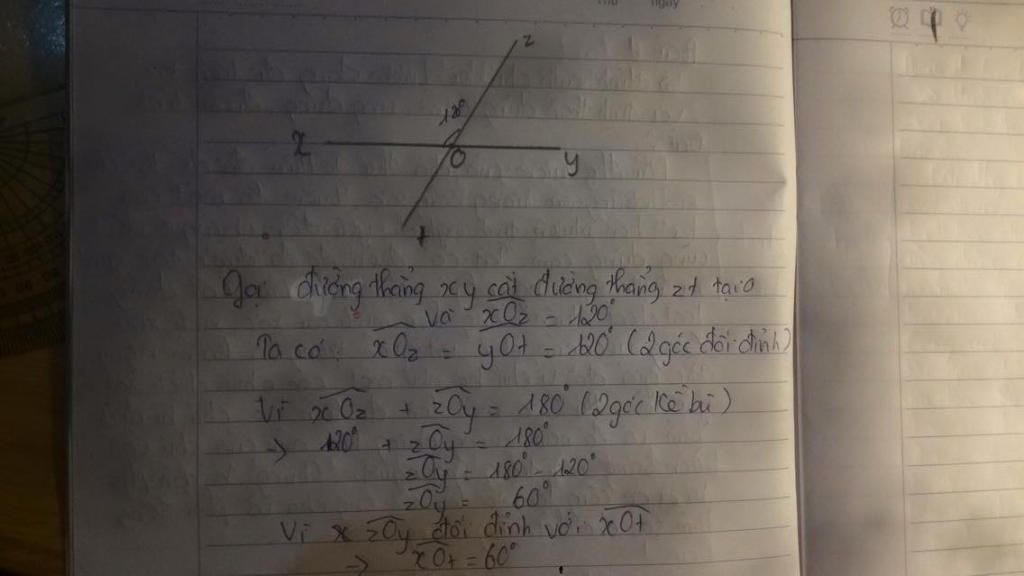 z
120°
x O y
t
Gọi đường thẳng xy cắt đường thẳng zt tại O
và xOz = 120°
Ta có: xOz = yOt = 120° (2góc đối đỉnh)
Vì xOz + zOy = 180° (2góc kề bù)
→ 120° + zOy = 180°
zOy = 180° - 120°
zOy = 60°
Vì x zOy đối đỉnh với xOt
→ xOt = 60°